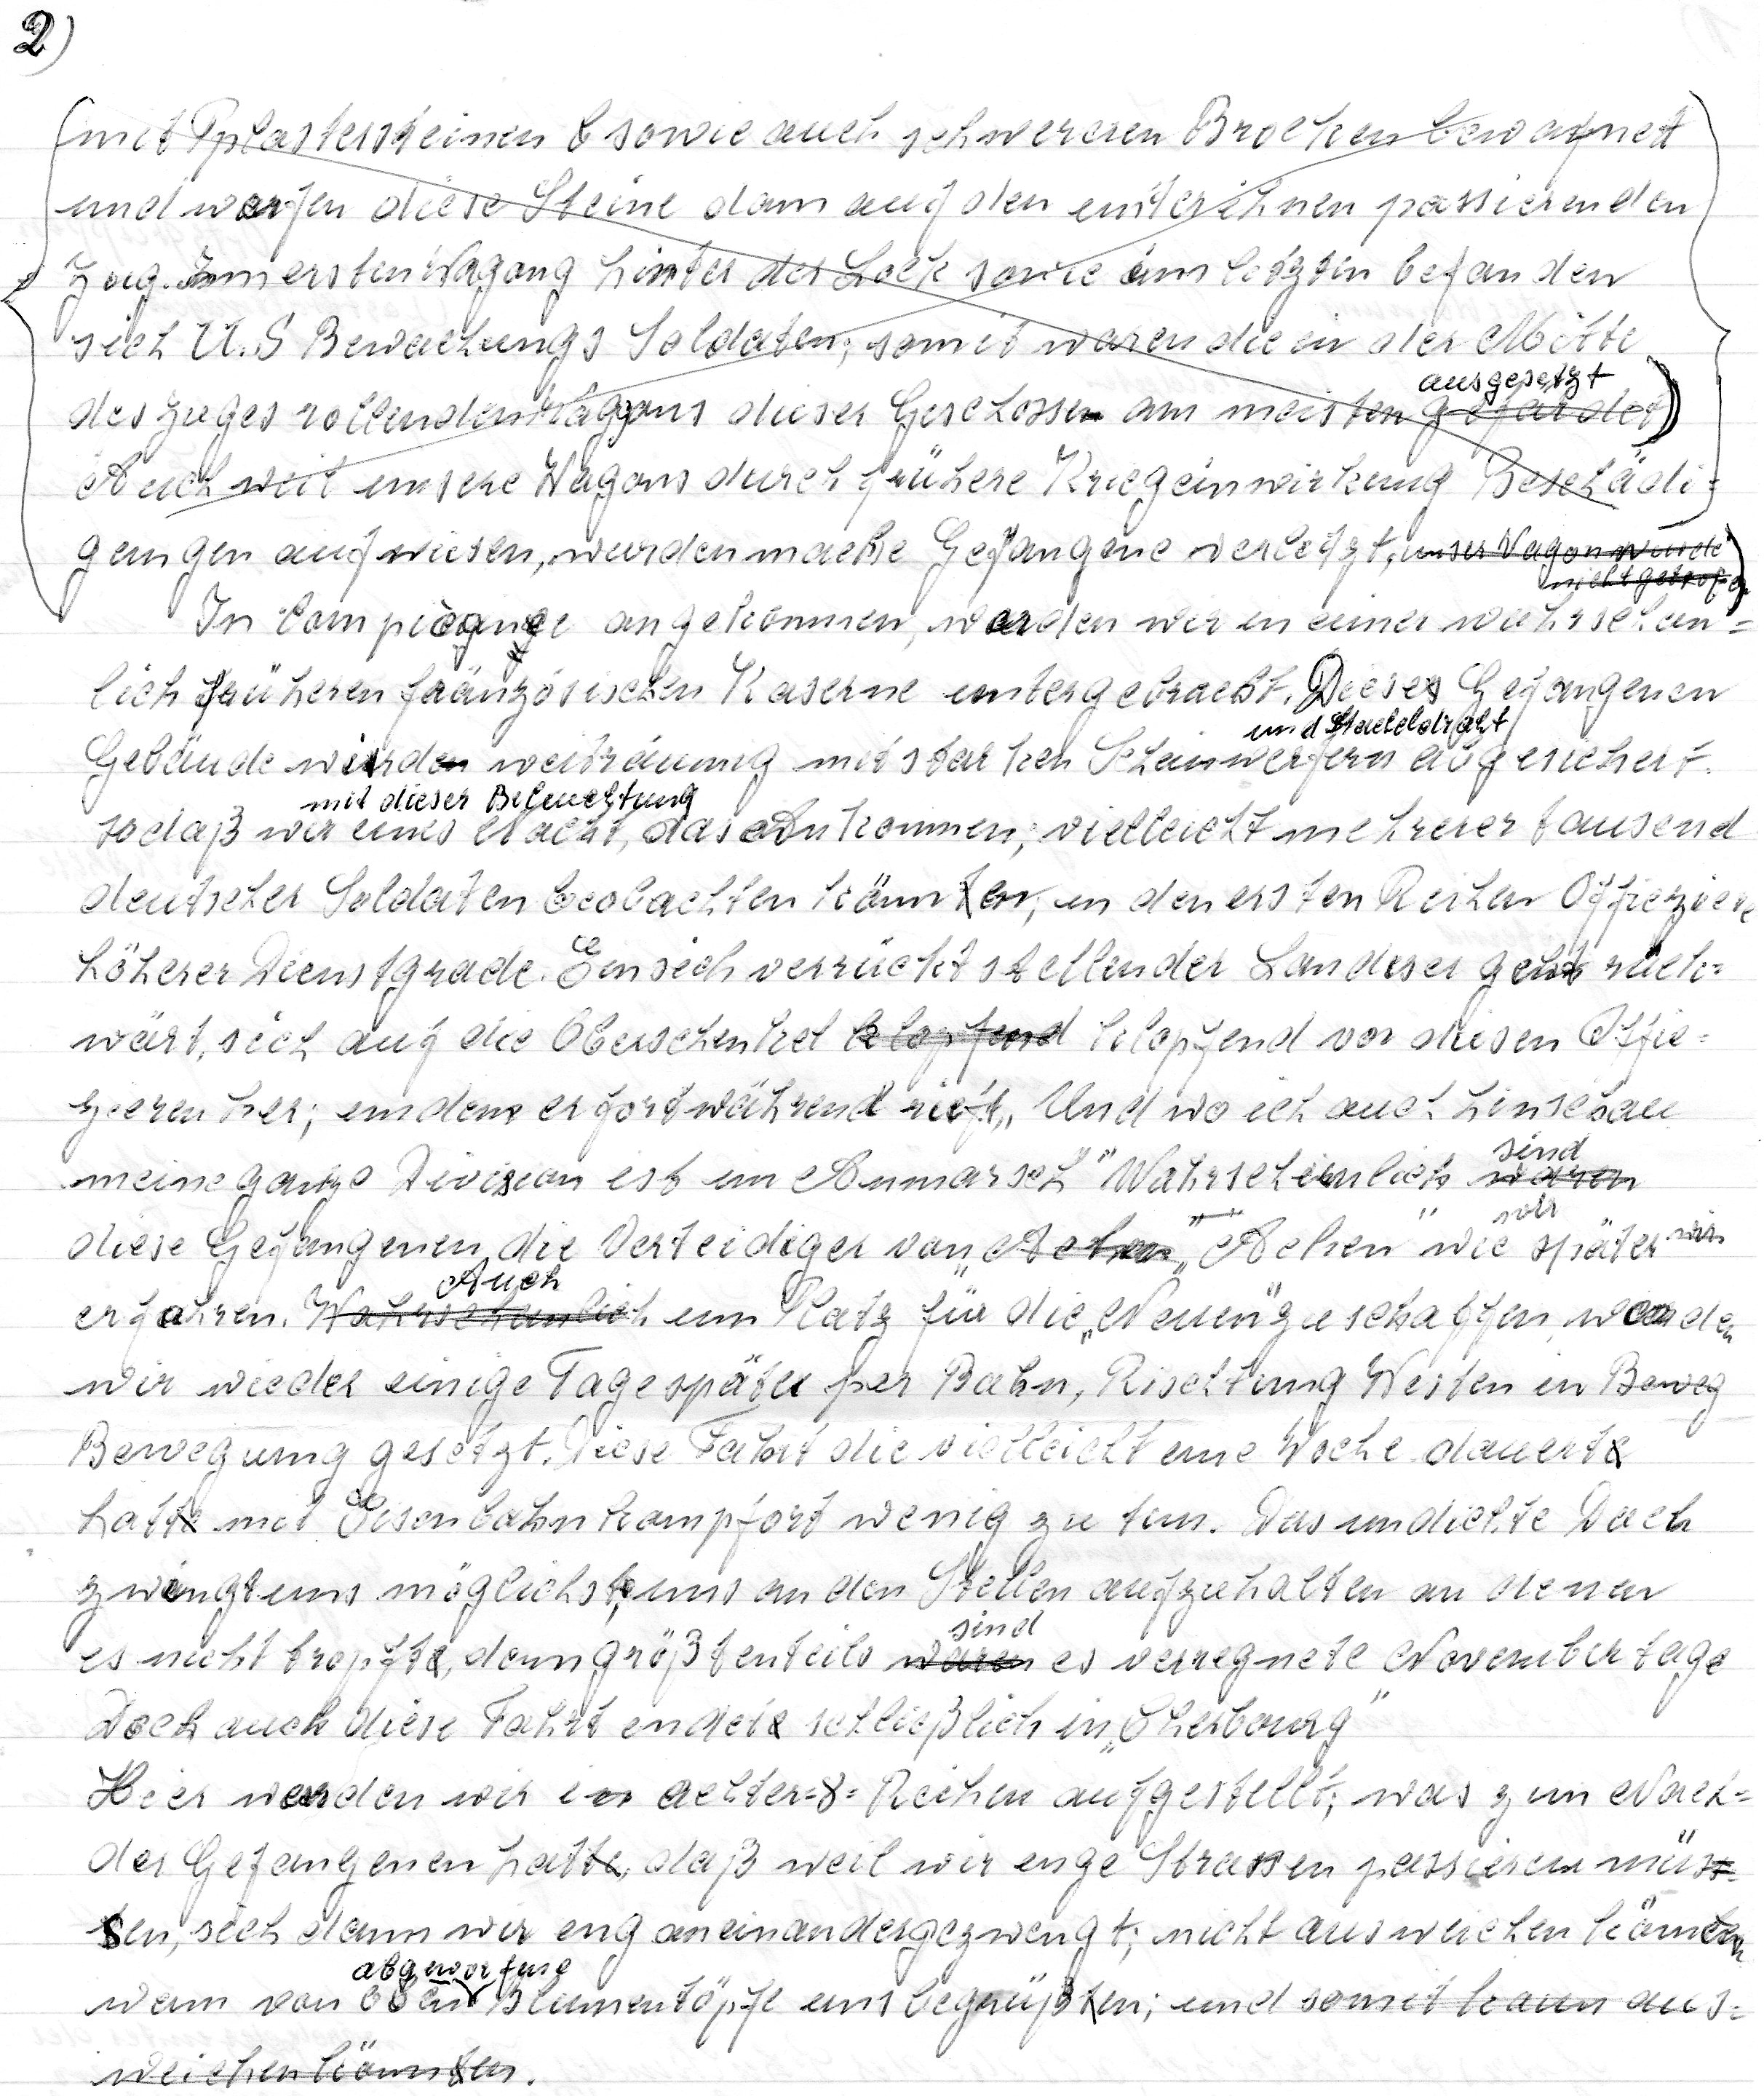 2)
(mit Pplastersteinen & sowie auch schwereren Brocken bewafnet
und werfen diese Steine dann auf den unter ihnen passierenden
Zug. Im ersten Wagong hinter der Lock sowie im letzten befanden
sich U.S Bewachungs Soldaten, somit waren die in der Mitte
ausgesetzt
des Zuges rollenden Waggons dieser Geschossen am meisten gefärdet)
Auch weil unsere Wagons durch frühere Kriegeinwirkung Beschädi=
gungen aufwiesen, wurden mache Gefangene verletzt, unser Wagon wurde
nicht getrofen
In Compiegnge angekommen, werden wir in einer wahrschein=
lich früheren französischen Kaserne untergebracht. Dieses Gefangenen
und Stacheldraht
Gebäude wird weiträumig mit starken Scheinwerfern abgesichert.
mit dieser Beleuchtung
sodaß wir eines Nacht, das Ankommen, vielleicht mehrerer tausend
deutscher Soldaten beobachten können, in den ersten Reihen Offieziere
höherer Dienstgrade. Ein sich verrückt stellender Landser geht rück=
wärt, sich auf die Oberschenkel klopfend klopfend vor diesen Offie=
zieren her; indem er fortwährend ruft „Und wo ich auch hinschau
meine ganze Division ist im Anmarsch" Wahrscheinlich waren
sind
diese Gefangenen, die Verteidiger von „Achen „Achen" wie später wir
Auch
erfahren. Wahrscheinlich um Platz für die „Neuen" zu schaffen, werden
wir wieder einige Tage später per Bahn, Rischtung Westen in Beweg
Bewegung gesetzt. Diese Fahrt die vielleicht eine Woche dauert
hatt mit Eisenbahnkampfort wenig zu tun. Das undichte Dach
zwingt uns möglichst, uns an den Stellen aufzuhalten an denen
sind
es nicht tropft, denn größtenteils waren es verregnete Novembertage
Doch auch diese Fahrt endet schließlich in „Cherbourg"
Hier werden wir in achter=8= Reihen aufgestellt; was zum Nach=
der Gefangenen hatte, daß weil wir enge Strassen passieren müs=
sen, sich dann wir eng aneinandergezwengt; nicht ausweichen können
abgeworfene
wenn von oben Blumentöpfe uns begrüßen; und somit kaum aus=
weichen können.